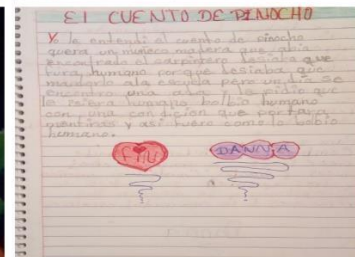 El CUENTO DE PINOCHO
Yo le entendi al cuento de pinocho
quera un muñeco madera que abia
encontrado el carpintero desiaba que
fura humano porque desiaba que
mandarlo ala escuela per un dia se
encontro una ada y le pidio que
lo isiera humano bolbio humano
con una condicion que portara
mentiras y asi fuero como lo bobio
humano.
FIN
DANNA